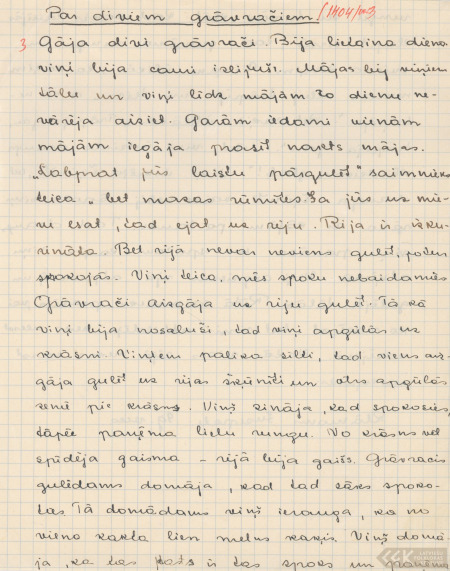 Par diviem grāvračiem. (1404/m3)
3 Gāja divi grāvrači. Bija lietaina diena
viņi bija cauri izlijuši. Mājas bij viņiem
tālu un viņi līdz mājām to dienu ne-
varēja aiziet. Garām iedami vienām
mājām iegāja prasīt nakts mājas.
„Labprāt jūs laistu pārgulēt" saimnieks
teica „bet mazas rūmītes. Ja jūs uz mie-
ru esat, tad ejat uz riju. Rija ir izku-
rināta. Bet rijā nevar neviens gulēt, jo tur
spokojās. Viņi teica, mēs spoku nebaidamies
Grāvrači aizgāja uz riju gulēt. Tā kā
viņi bija nosaluši, tad viņi apgūlās uz
krāsni Viņiem palika silti, tad viens aiz-
gāja gulēt uz rijas šķūnīti un otrs apgūlās
zemē pie krāsns. Viņš zināja, kad spokosies
tāpēc paņēma lielu rungu. No krāsns vēl
spīdēja gaisma – rijā bija gaišs. Grāvracis
gulēdams domāja, kad tad sāks spoko-
ties Tā domādams viņš ierauga, ka no
viena kakta lien melns kaķis. Viņš domā-
ja, ka tas pats ir tas spoks un